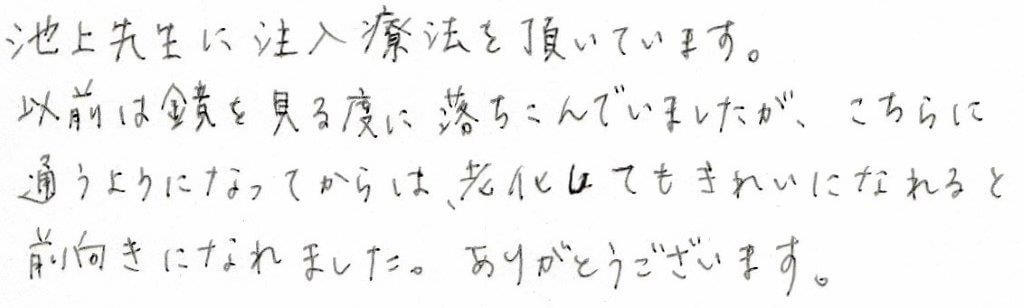 池上先生に注入療法を頂いています。
以前は鏡を見る度に落ちこんでいましたが、こちらに
通うようになってからは、老化してもきれいになれると
前向きになれました。ありがとうございます。